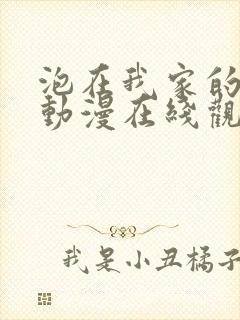 泡在我家的
動漫在綫觀
我是小丑橘子